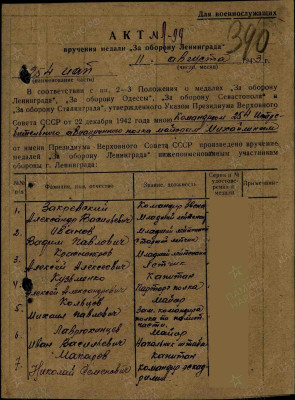 Для военнослужащих
390
АКТ № 9-99
вручения медали „За оборону Ленинграда"
11 августа 1943 г.
(число, месяц)
254 иап
(наименование части)
В соответствии с пп. 2—3 Положения о медалях „За оборону
Ленинграда", „За оборону Одессы", „За оборону Севастополя" и
„За оборону Сталинграда", утвержденного Указом Президиума Верховного
Совета СССР от 22 декабря 1942 года мною Командиром 254 Истре-
бительного авиационного полка майором
от имени Президиума Верховного Совета СССР произведено вручение
медалей „За оборону Ленинграда" нижепоименованным участникам
обороны г. Ленинграда:
Фамилия, имя, отчество
Звание, должность
Серия и № удостоверения к медали
Примечание
1. Закревский Командир звена
Александр Васильевич Младший лейтенант
2. Иванов
Вадим Павлович Младший лейтенант
3. Младший лейтенант
Алексей Алексеевич Летчик
4. Кузменко Капитан
Алексей Александрович Парторг полка
5. Кольцов Майор
Михаил Павлович Зам. командира
полка по полит.
части.
6. Майор
Иван Васильевич Начальник штаба
7. Макаров Капитан
Николай Семенович Командир эскад-
рильи